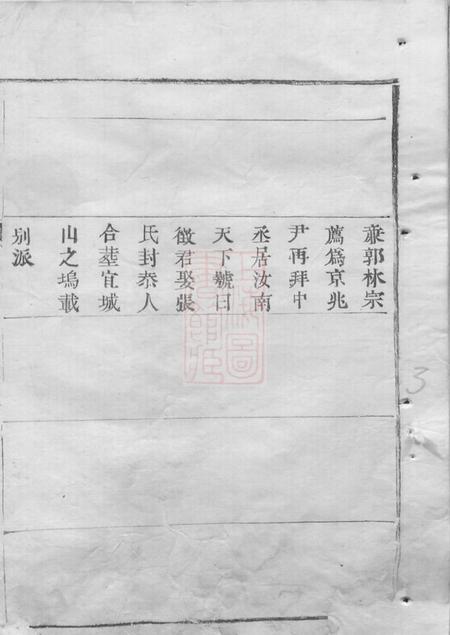 兼郭林宗
薦爲京兆
尹再拜中
丞居汝南
天下號曰
徵君娶張
氏封泰人
合塟宜城
山之塢載
別派
3